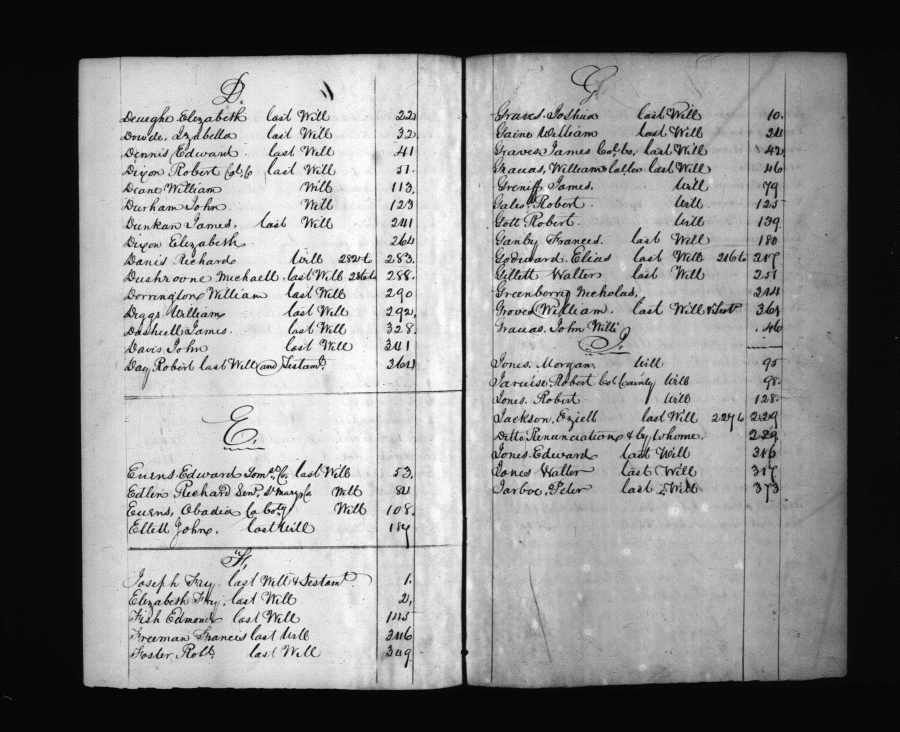 D.
Deueghe Elizabeth last Will 22
Dowde, Izabella last Will 32
Dennis Edward last Will 41
Dixon Robert Col. Co last Will 51.
Deane William Will 113,
Durham John Will 123
Dunkan James, last Will 241
Dixon Elizabeth 264
Denis Richard Will 282 to 283.
Michaell, last Will 286 to 288.
Dorrington William last Will 290
Diggs William last Will 292,
Dashiell James. last Will 328
Davis John last Will 341
Day Robert last Will and Testamt. 364
E.
Euens Edward Som. Co. last Will 53,
Edlen Richard Senr, St Marys Co Will 84
Euens, Obadia Co Coty Will 108.
Ellett John. last Will 187
F,
Joseph Fry. last Will & Testamt. 1.
Elizabeth Fry, last Will 2,
Fish Edmond last Will 145
Freeman Francis last Will 346
Foster Robt. last Will 349.
G
Graves Joshua last Will 10.
Gaine William last Will 24
Graves James Col. Co, last Will 42
William last Will 46
Greniff James, Will 79
Gales Robert Will 125
Gott Robert Will 139
Ganby Frances. last Will 180
Godward Elias last Will 216 to 217
Gillett Walter last Will 251
Greenborry Nicholas, 314
Groves William. last Will & Test. 361
John Will .46
J.
Jones. Morgan. Will 95
Jaruise Robert County Will 98.
Jones. Robert Will 128.
Jackson, last Will 227 to 229
Ditto Renunciation & by whome. 229
Jones Edward last Will 316
Jones Walter last Will 317
Jarboe, Peter last Will 373